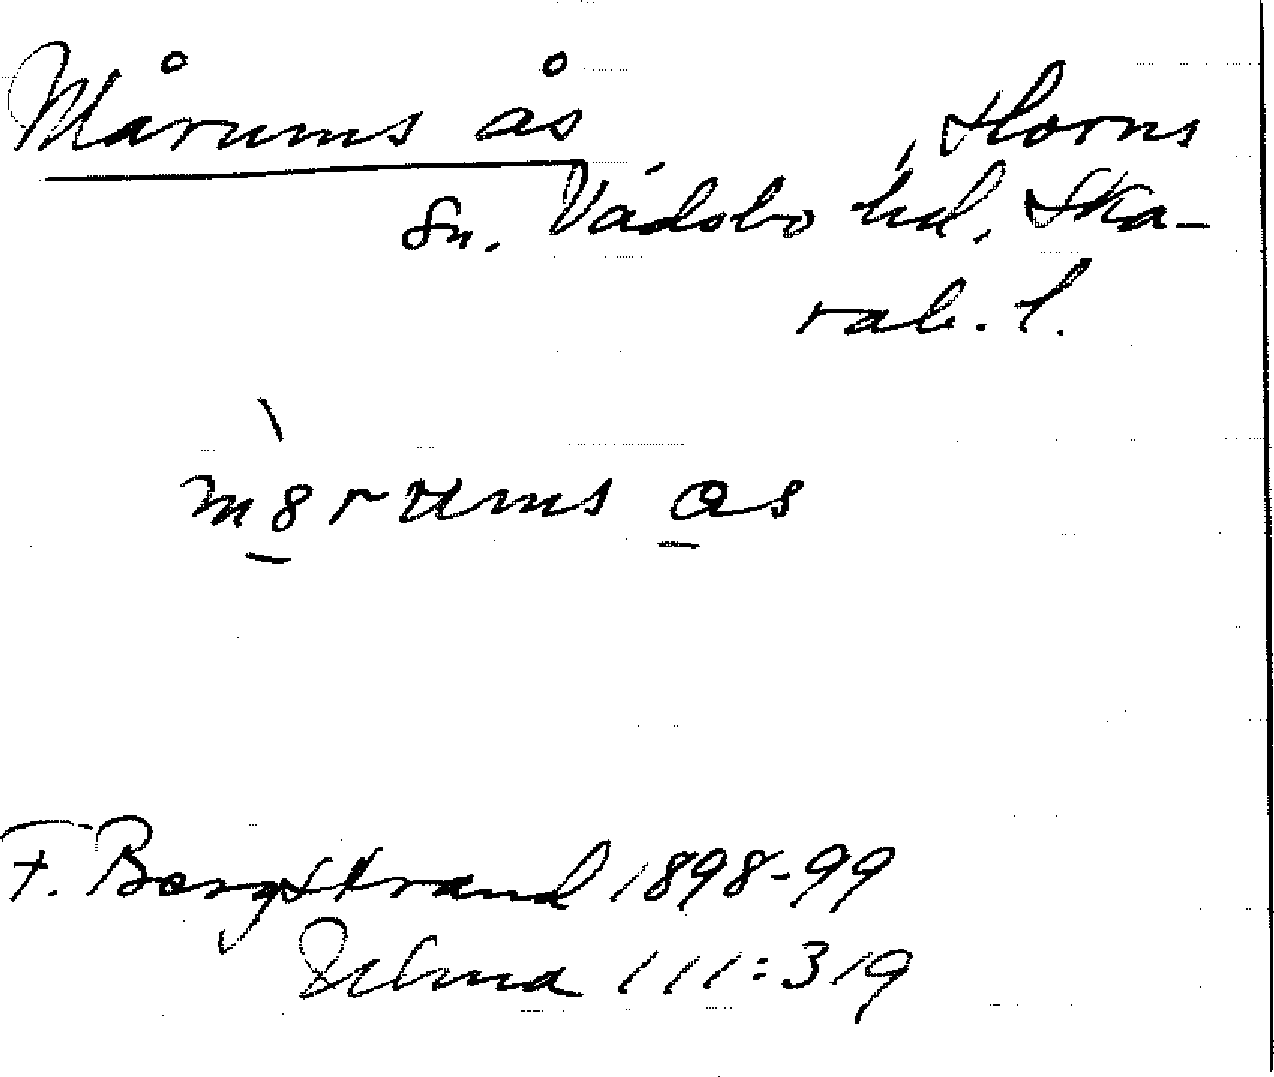 Mårums ås , Horns
Sn. Vadsbo hd. Ska-
rab. l.
m8rums as
F. Bergstrand 1898-99
Ulma 111:319